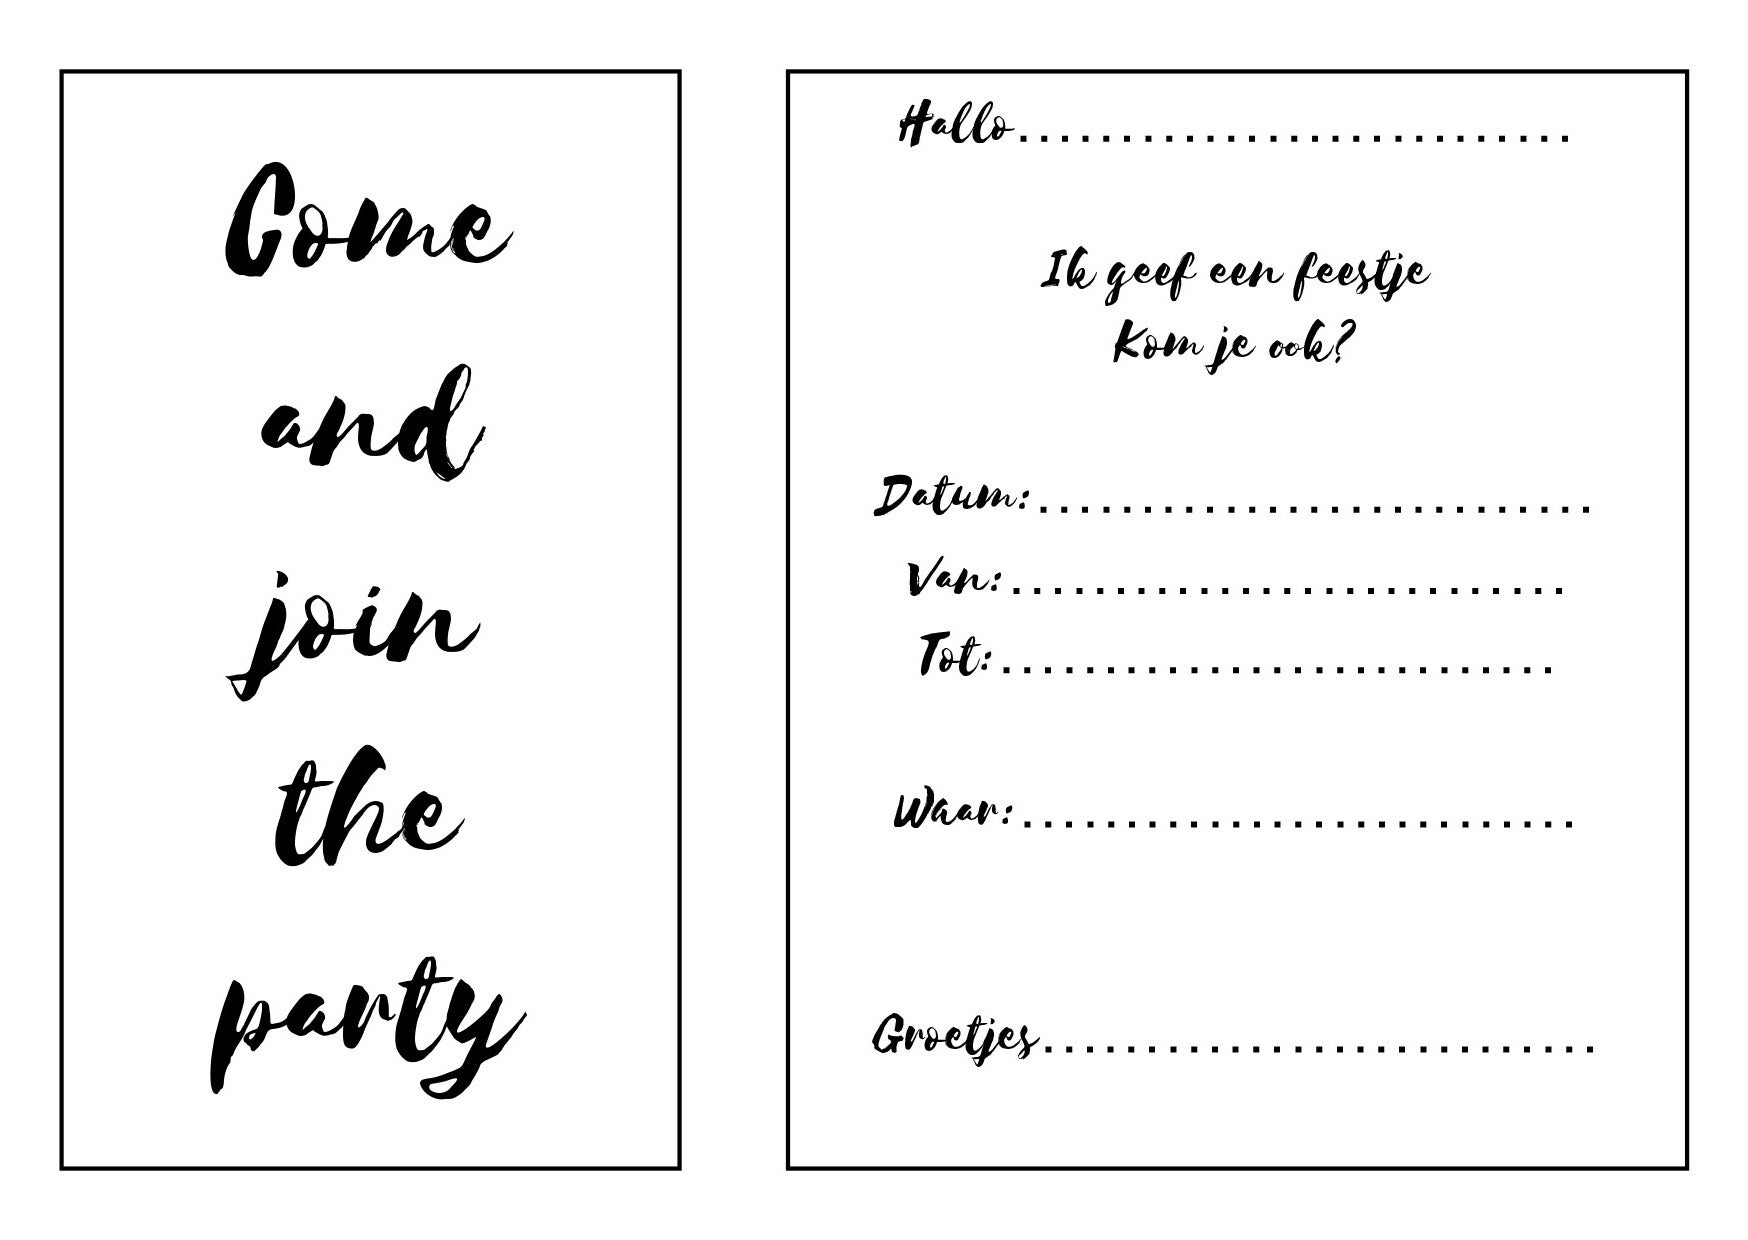 Come
and
join
the
party
Hallo...........................
Ik geef een feestje
Kom je ook?
Datum:...........................
Van:...........................
Tot:...........................
Waar:...........................
Groetjes...........................